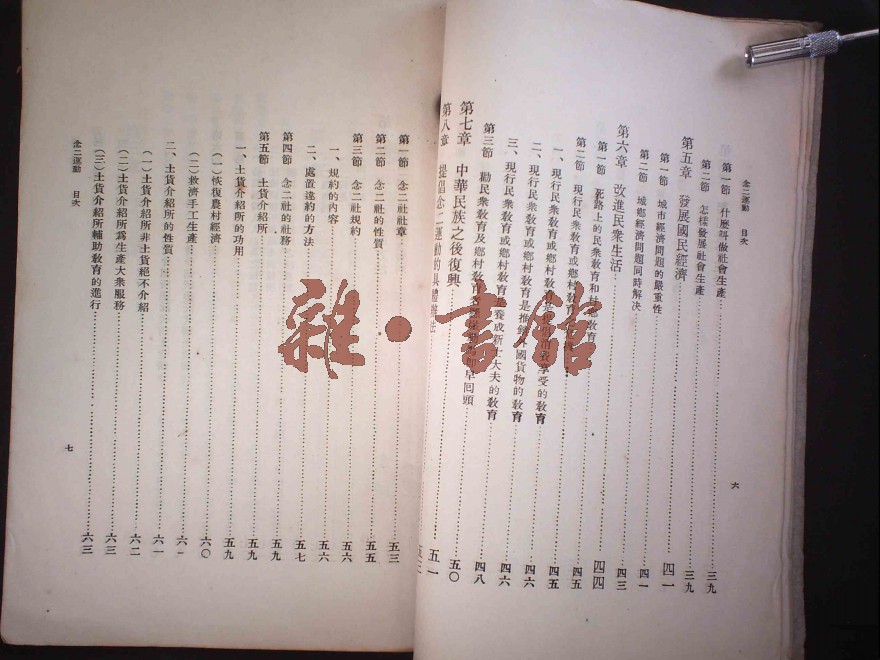 念二運動　目次
第一節　什麽叫做社會生產……三九
第二節　怎樣發展社會生產……三九
第五章　發展國民經濟……四一
第一節　城市經濟問題的嚴重性……四一
第二節　城鄉經濟問題同時解決……四三
第六章　改進民衆生活……四四
第一節　死路上的民衆敎育和鄉村敎育……四四
第二節　現行民衆敎育或鄉村敎育……四五
一、現行民衆敎育或鄉村敎育　享受的敎育……四五
二、現行民衆敎育或鄉村敎育是推銷外國貨物的敎育……四六
三、現行民衆敎育或鄉村敎育是養成新士大夫的敎育……四六
第三節　勸民衆敎育及鄉村敎育　早回頭……四八
第七章　中華民族之後復興……五〇
第八章　提倡念二運動的具體辦法……五一
六
第一節　念二社社章……五三
第二節　念二社的性質……五五
第三節　念二社規約……五六
一、規約的內容……五六
二、處置違約的方法……五七
第四節　念二社的社務……五九
第五節　土貨介紹所……五九
一、土貨介紹所的功用……五九
（一）恢復農村經濟……六〇
（二）救濟手工生產……六一
二、土貨介紹所的性質……六一
（一）土貨介紹所非土貨絕不介紹……六二
（二）土貨介紹所爲生產大衆服務……六三
（三）土貨介紹所輔助敎育的進行……六三
念二運動　目次
七
雜·書館